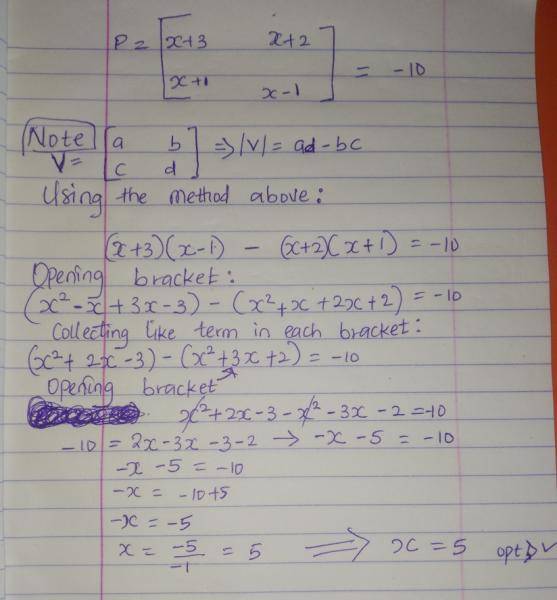 P = [x+3 x+2
x+1 x-1] = -10
Note
V = [a b
c d] ⇒ |V| = ad - bc
Using the method above:
(x+3)(x-1) - (x+2)(x+1) = -10
Opening bracket:
(x² - x + 3x - 3) - (x² + x + 2x + 2) = -10
Collecting like term in each bracket:
(x² + 2x - 3) - (x² + 3x + 2) = -10
Opening bracket
x² + 2x - 3 - x² - 3x - 2 = -10
-10 = 2x - 3x - 3 - 2 → -x - 5 = -10
-x - 5 = -10
-x = -10+5
-x = -5
x = -5/-1 = 5 ⇒ x = 5 opt D ✓